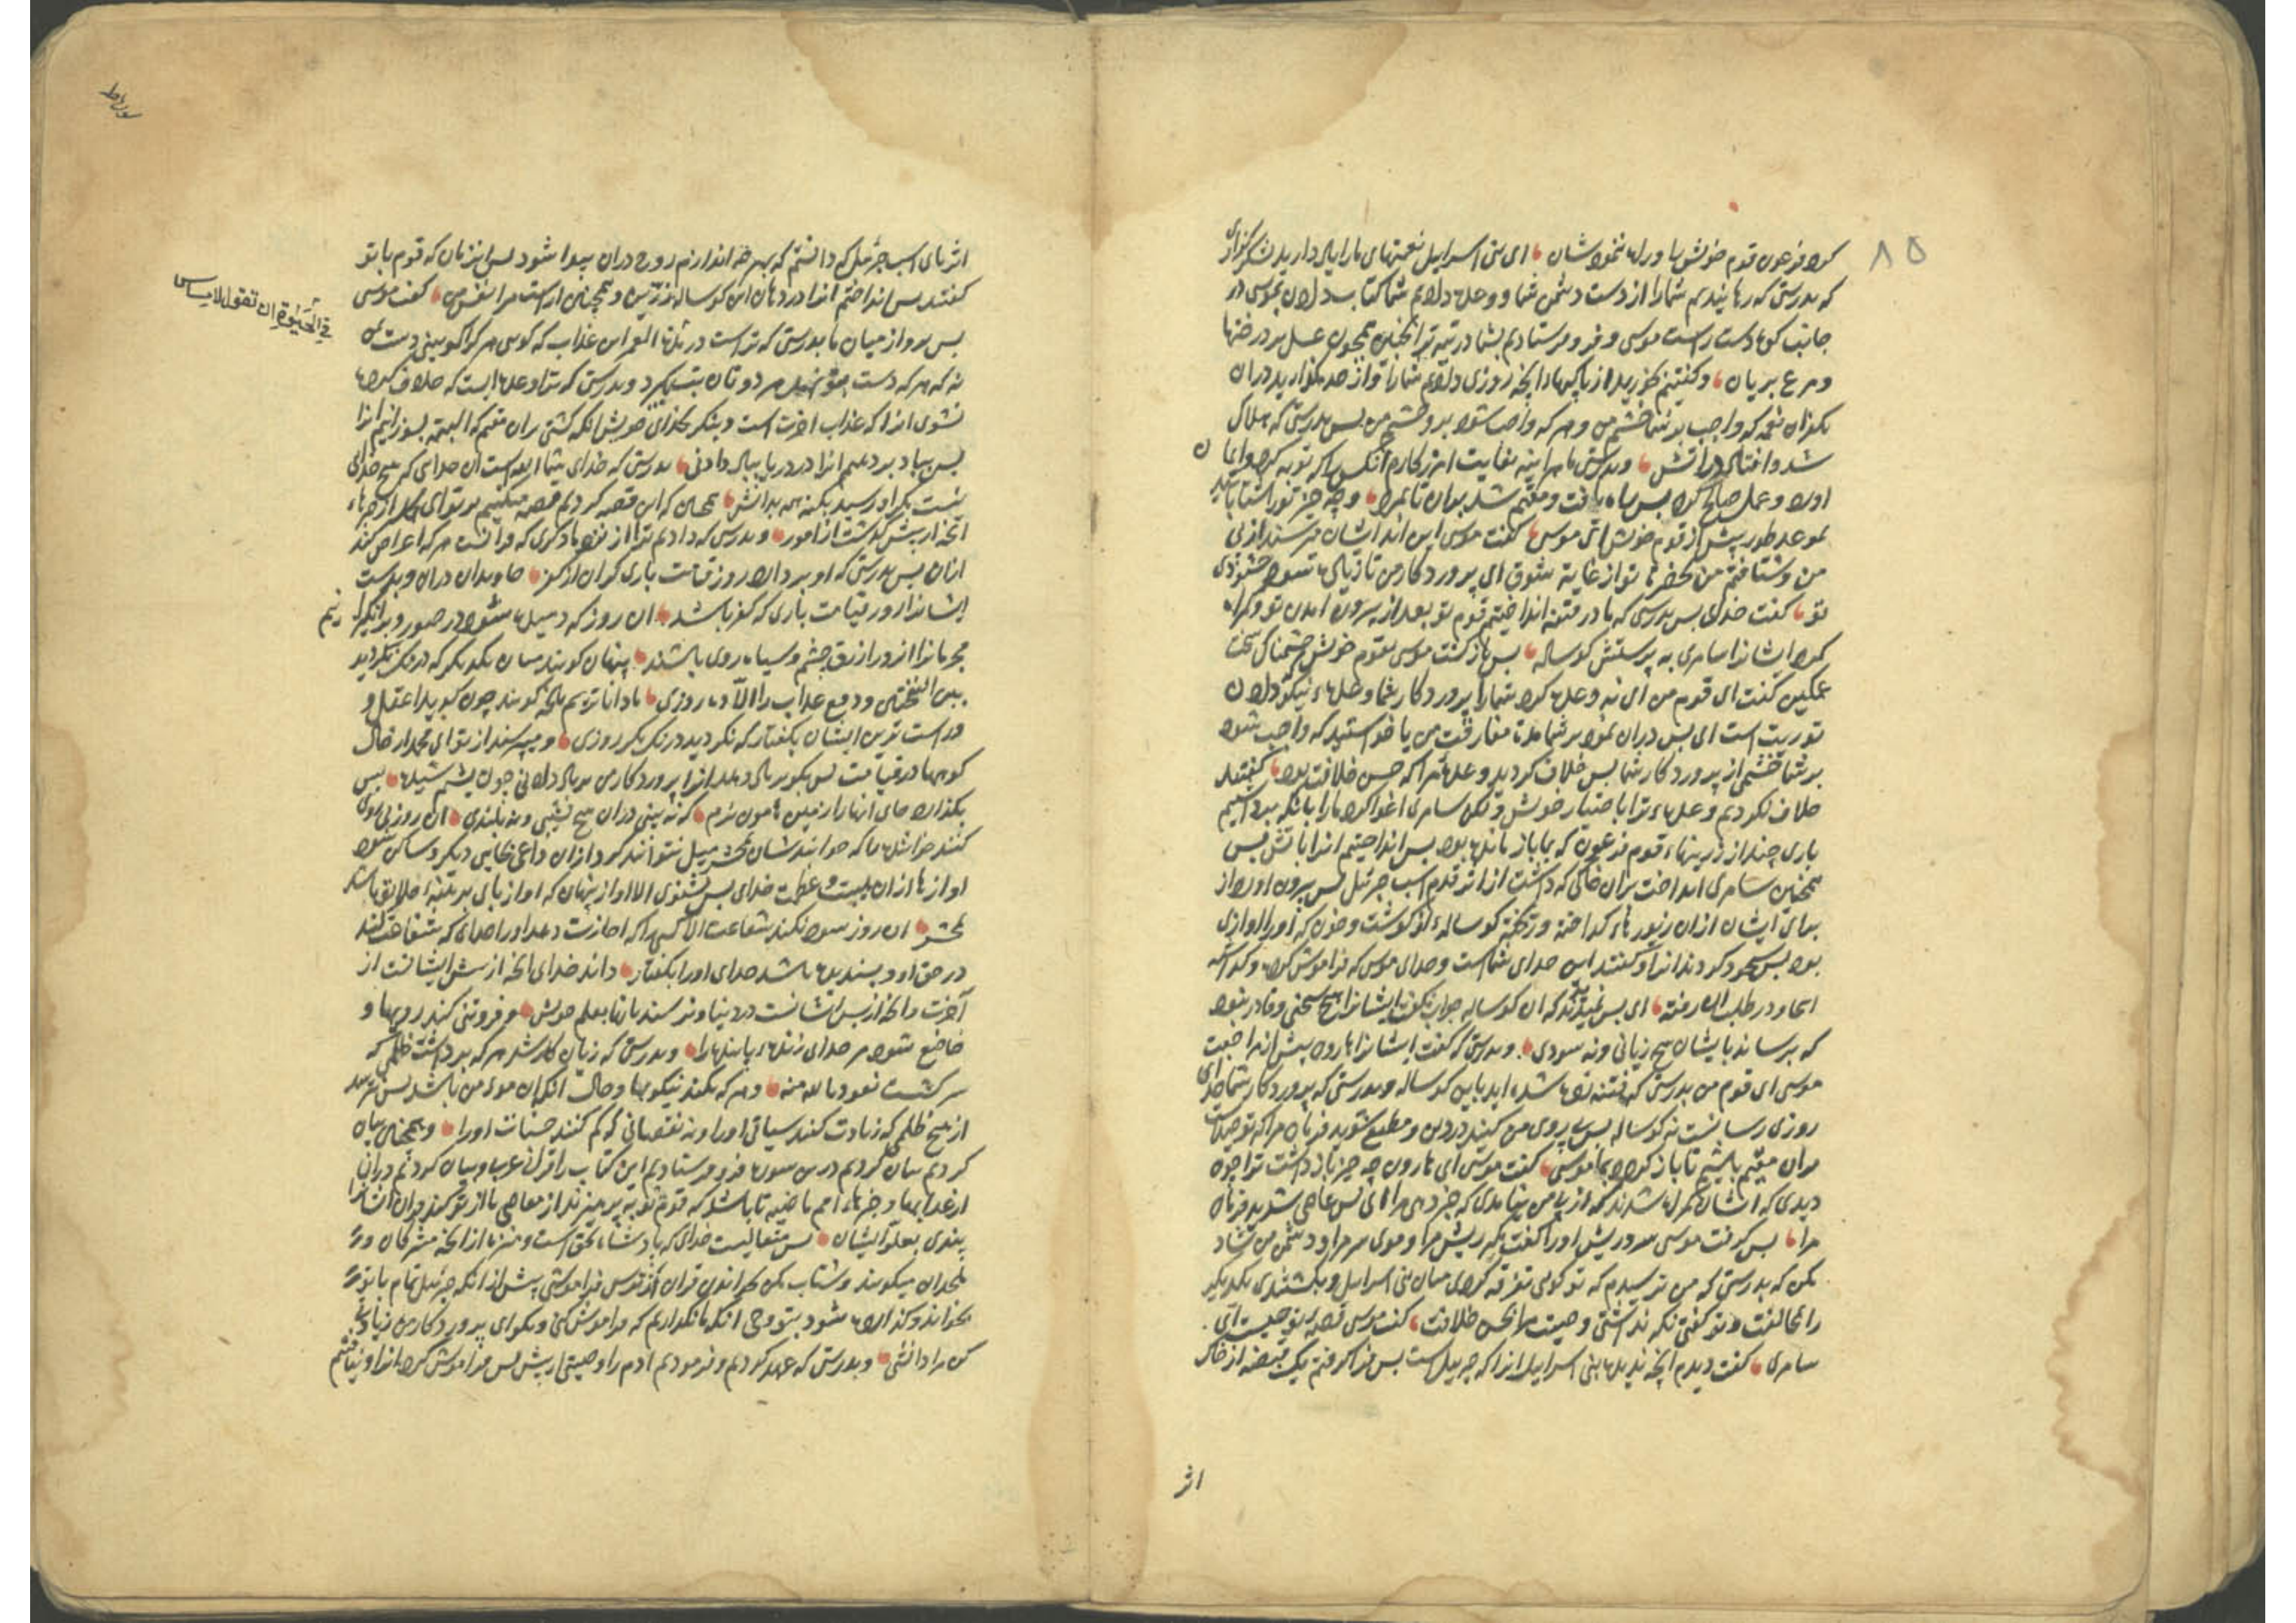 ۸۵
کرد فرعون قوم خویش را و راه ننمودشان ای بنی اسرایل نعمتهای ما را یاد دارید شکرگزاری
که بدرستی که رهانیدیم شما را از دست دشمن شما و وعده دادیم شما کتاب دادن بموسی در
جانب کوه دست راست موسی و فرو فرستادیم بشما در تیه ترانجبین همچون عسل بر درختها
و مرغ بریان و گفتیم بخورید از پاکیها آنچه روزی دادیم شما را و از حد مگذارید دران
کفران نعمه که واجب بر شما خشم من و هر که واجب شود برو خشم من پس بدرستی که هلاک
شد و افتاد در آتش و بدرستی ما هراینه بغایت امرزکارم آنکس را که توبه کرد و ایمان
اورد و عمل صالح کرد پس راه یافت و مقیم شد بران تا بمرد و چه چیز تو را شتابانید
بموعد طور پیش از قوم خویش ای موسی گفت موسی این اند ایشان میرسند از پی
من و شتافتم من بحضرت تو از غایة شوق ای پروردکار من تا زیاده شود خشنودی
تو گفت خدای پس بدرستی که ما در فتنه انداختیم قوم تو بعد از بیرون امدن تو و گمراه
کرد ایشانرا سامری به پرستش کوساله پس بازگشت موسی بقوم خویش خشمناک سخت
غمگین گفت ای قوم من ای نه وعده کرد شما را پروردکار شما وعده نیکو دادن
توریت است ای پس دران نمود بر شما مدة مفارقت من یا خواستید که واجب شود
بر شما خشم از پروردکار شما پس خلاف کردید وعده مرا که حسن خلافت بود گفتند
خلاف نکردیم وعده ترا باختیار خویش ولکن سامری اغوا کرد ما را بانکه برداشتیم
باری چند از زرینهاء قوم فرعون که بما باز مانده بود پس انداختیم انرا باتش پس
همچنین سامری انداخت بران خاکی که داشت از اثر قدم اسب جبرئیل پس بیرون اورد از
برای ایشان ازان زیورهاء کداخته و ریخته کوساله از گوشت و خون که او را اوازی
بود پس سجود کردند انرا و گفتند این خدای شماست و خدای موسی که فراموش کرده و گذاشته
اینجا و در طلب او رفته ای پس نمیبینند که ان کوساله جواب نگوید ایشانرا هیچ سخنی و قادر نبود
که برساند بایشان هیچ زیانی و نه سودی و بدرستی که گفت ایشانرا هارون پیش از مراجعت
موسی ای قوم من بدرستی که فتنه زده شده اید باین کوساله و بدرستی که پروردکار شما خدای
روزی رسانست نه کوساله پس پی روی من کنید در دین و مطیع شوید فرمان مرا که توحید است
بران مقیم باشیم تا باز گردد بما موسی گفت موسی ای هارون چه چیز باز داشت ترا چون
دیدی که ایشان گمراه شدند که از پی من نیامدی که خبر دهی مرا ای پس عاصی شدید فرمان
مرا پس گرفت موسی سر و ریش او را گفت مگیر ریش مرا و موی سر مرا و دشمن من شاد
مکن که بدرستی که من ترسیدم که تو کوئی تفرقه کردی میان بنی اسرایل و بکشندی یکدیگر
را بمخالفت و تو گفتی نگه نداشتی وصیت مرا بحسن خلافت گفت موسی قصه تو چیست ای
سامری گفت دیدم آنچه ندیده بنی اسرایل انرا که جبریل است پس فرا گرفتم یک قبضه از خاک
اثر
اثر پای اسب جبرئیل که دانستم که بهر چه اندازند روح دران پیدا شود پس انزمان که قوم با تو
گفتند پس انداختم انرا در دهان این کوساله زرین و همچنین اراست مرا نفس من گفت موسی
پس برو از میان ما بدرستی که تراست در زنده العمر این عذاب که کوئی هر کرا که بینی دست من
نه که هر که دست بتو نهد هر دو تان بتب گیرد و بدرستی که ترا وعده ایست که خلاف کرده
نشوی انرا که عذاب اخرت است و بنگر بخدای خویش انکه گشتی بران مقیم که البته بسوزانیم انرا
پس بباد بر دهیم انرا در دریا بباد دادنی بدرستی که خدای شما الله است ان خدای که هیچ خدای
نیست مگر او رسید بکنه همه بدانش همچنان که این قصه کردیم قصه میکنیم بر تو ای محمد از خبرهاء
آنچه از پیش گذشت از امور و بدرستی که دادیم ترا از نزد ما ذکری که قرآنست هر که اعراض کند
ازان پس بدرستی که او بردارد روز قیامت باری گران از کفر جاویدان دران و بد است
ایشانرا روز قیامت باری که کفر باشد ان روز که دمیده شود در صور و برانگیزانیم
مجرمانرا ان روز ازرق چشم و سیاه روی باشند پنهان گویند میان یکدیگر که درنگ نکردید
بین النفختین و دفع عذاب را الا ده روزی ما داناتریم بآنچه گویند چون گوید اعقل و
و راست ترین ایشان بگفتار که نکردید درنگ مگر روزی و میپرسند از تو ای محمد از حال
کوهها در قیامت پس بگو بر باد دهد انرا پروردکار من بر باد دادنی چون پشم شیده پس
بگذارد جای انها را زمین هامون نرم که نه بینی دران هیچ نشیبی و نه بلندی ان روز پی روی
کنند خواننده را که خواندشان بمحشر میل نتوانند کرد ازان داعی بجایی دیگر و ساکن شود
اوازها ازان هیبت و عظمت خدای پس نشنوی الا اواز پنهان که اواز پای بر نهند خلایق باشد
بمحشر ان روز سود نکند شفاعت الا کسی را که اجازت دهد او را خدای که شفاعت کند
در حق او و پسندیده باشد خدای او را بگفتار داند خدای آنچه از پیش ایشانست از
آخرت و آنچه از پس ایشانست در دنیا و نرسند بارتا بعلم خویش و فروتنی کند رویها و
خاضع شود مر خدای زنده پاینده را و بدرستی که زیان کار شد هر که برداشت ظلمی که
سرکشت نعوذ بالله منه و هر که بکند نیکویها و حال آنکه ان مومن باشد پس نترسد
از هیچ ظلمی که زیادت کنند سیات او را و نه نقصانی که کم کنند حسنات او را و همچنین بیان
کردیم بیان کردیم درین سوره فرو فرستادیم این کتاب را قرانی عربی و بیان کردیم دران
از عذابها و خبرهاء امم ماضیه تا باشد که قوم تو بپرهیزند از معاصی یا از نو کند قران ایشانرا
پندی بعلو ایشان پس متعالیست خدای که پادشاه بحق است و منزه از آنچه مشرکان و
ملحدان میگویند و شتاب مکن بخواندن قران از ترس فراموشی پیش از انکه جبرئیل تمام با تو
بخواند و گذارده شود بتو وحی انکه ما نگذاریم که فراموش کنی و بگو ای پروردکار من زیادت
کن مرا دانشی و بدرستی که عهد کردیم و فرمودیم ادم را وصیتی از پیش پس فراموش کرد انرا و نیافتیم
في الحیوة ان تقول لا مساس
سوره طه